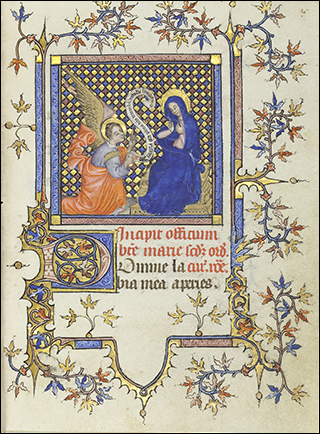 Incipit officium
bte marie scdz ord.
Domine la cur. rōe.
bia mea apries.